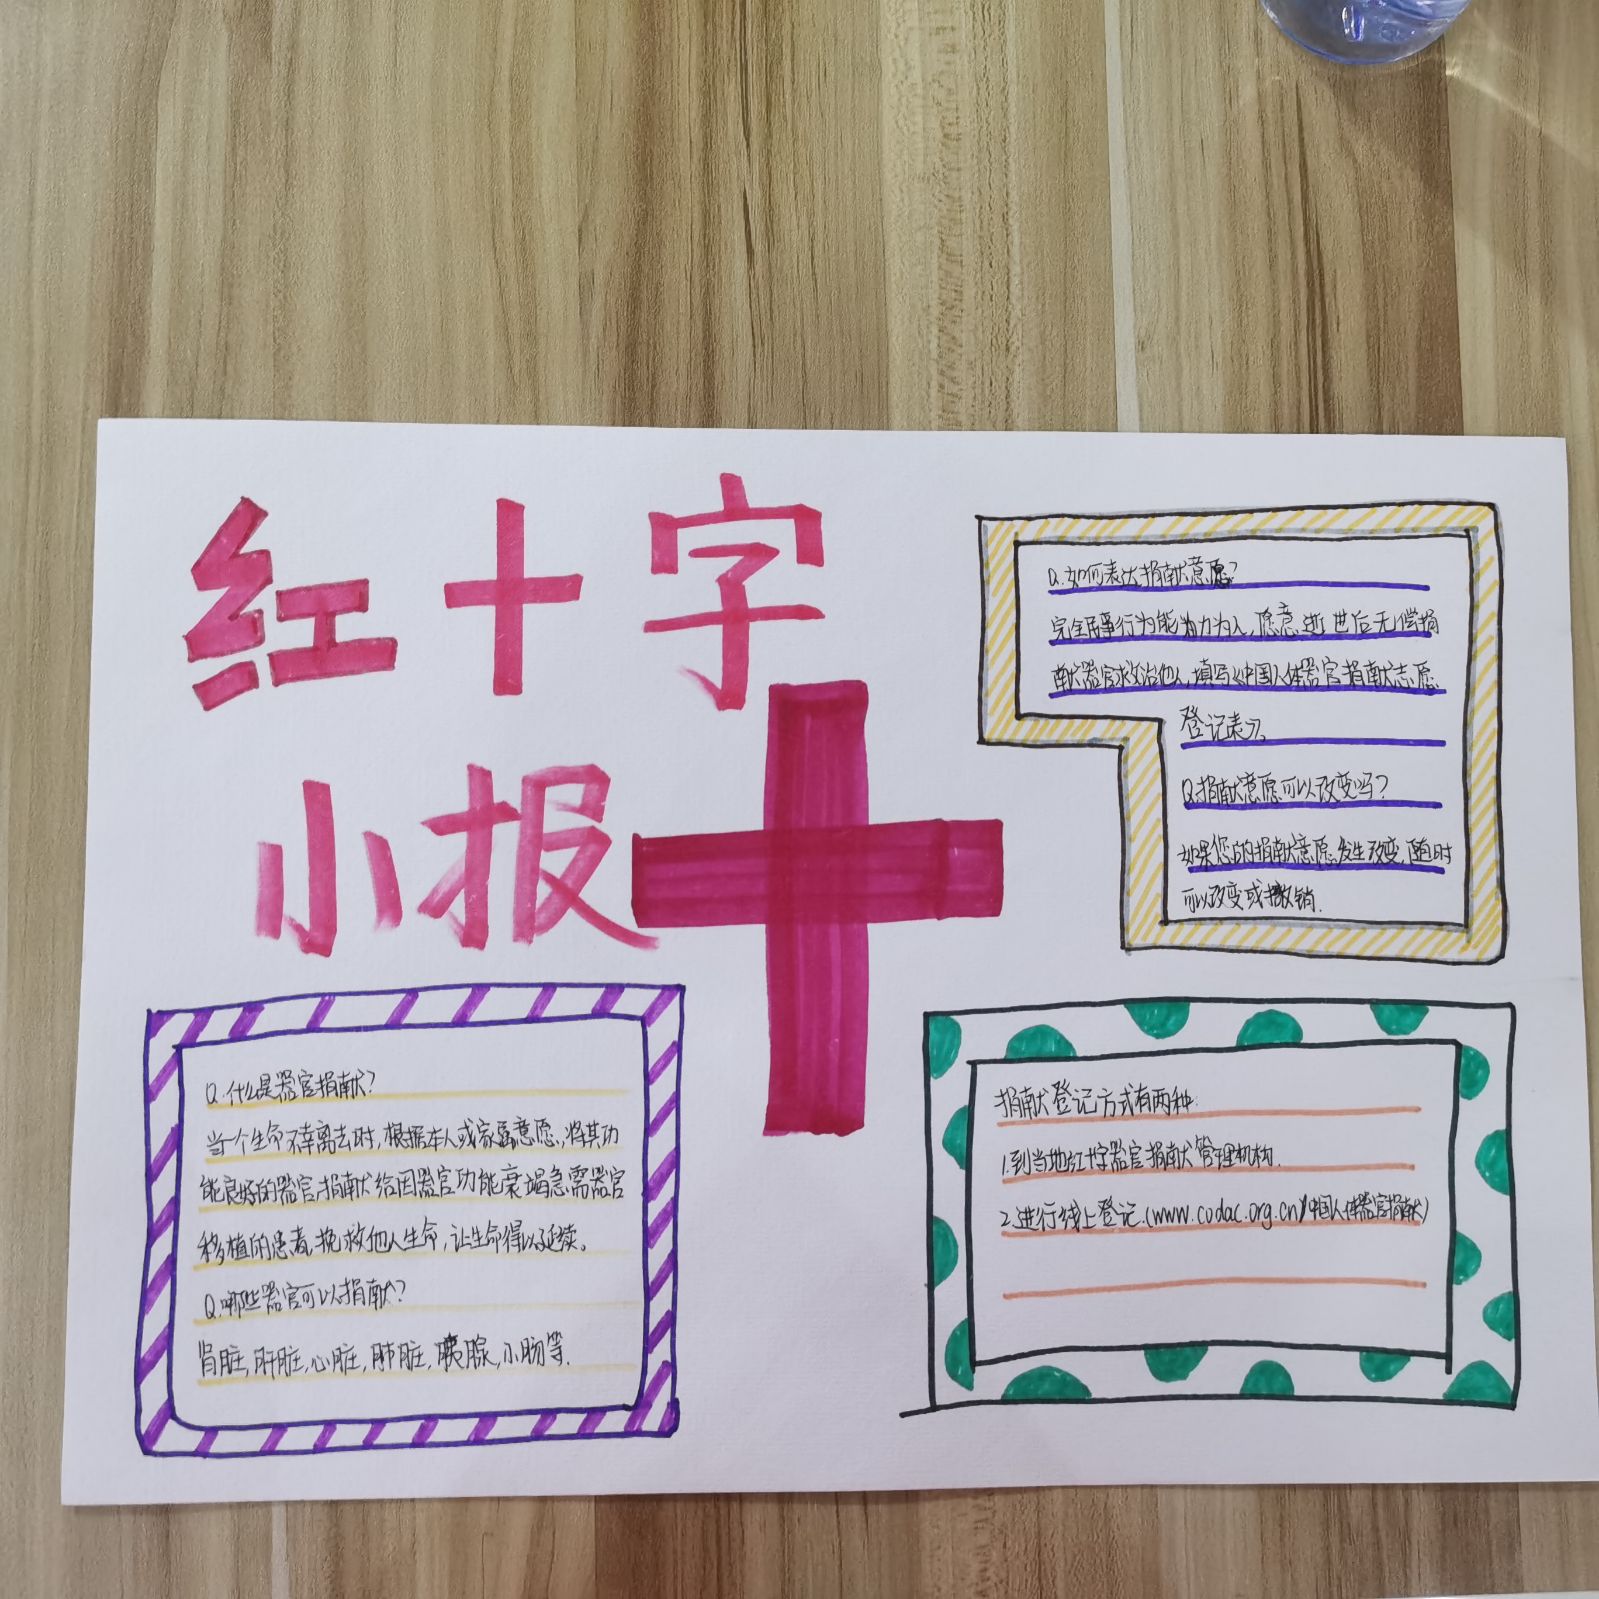 红十字
小报
Q.如何表达捐献意愿?
完全民事行为能力为人,愿意逝世后无偿捐
献器官救治他人,填写《中国人体器官捐献志愿
登记表》。
Q.捐献意愿可以改变吗?
如果您的捐献意愿发生改变,随时
可以改变或撤销.
Q.什么是器官捐献?
当一个生命不幸离去时,根据本人或家属意愿,将其功
能良好的器官,捐献给因器官功能衰竭急需器官
移植的患者,挽救他人生命,让生命得以延续。
Q.哪些器官可以捐献?
肾脏,肝脏,心脏,肺脏,胰腺,小肠等.
捐献登记方式有两种:
1.到当地红十字器官捐献管理机构.
2.进行线上登记.(www.codac.org.cn/中国人体器官捐献)